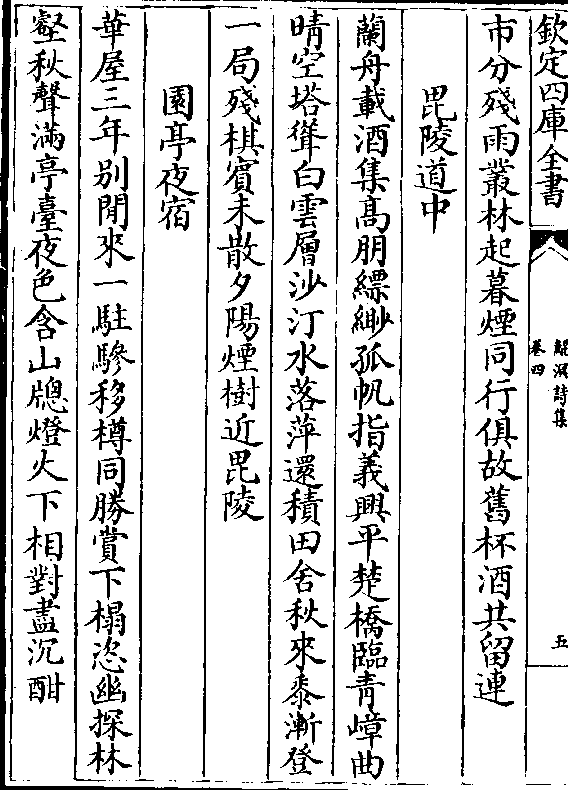 欽定四庫全書
鯤溟詩集
卷四
五
市分殘雨叢林起暮煙同行俱故舊杯酒共留連
毘陵道中
蘭舟載酒集髙朋縹緲孤帆指義興平楚橋臨青嶂曲
晴空塔聳白雲層沙汀水落萍還積田舍秋來黍漸登
一局殘棋賓未散夕陽煙樹近毘陵
園亭夜宿
華屋三年别閒來一駐驂移樽同勝賞下榻恣幽探林
壑秋聲滿亭臺夜色含山牕燈火下相對盡沉酣